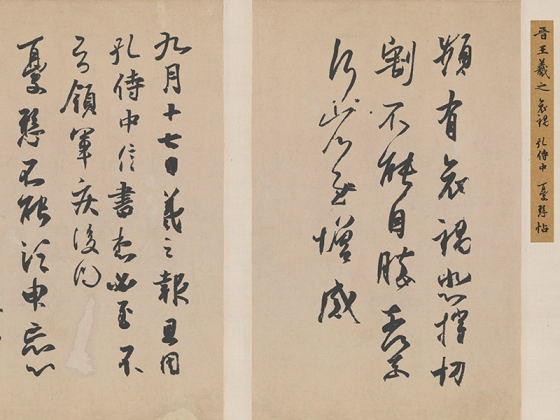 晉王羲之哀禍 孔侍中 憂懸帖
頻有哀禍悲摧切
割不能自勝奈何奈何
省慰增感
九月十七日羲之報且因
孔侍中信書想必至不
知領軍疾後問
憂懸不能須臾忘心